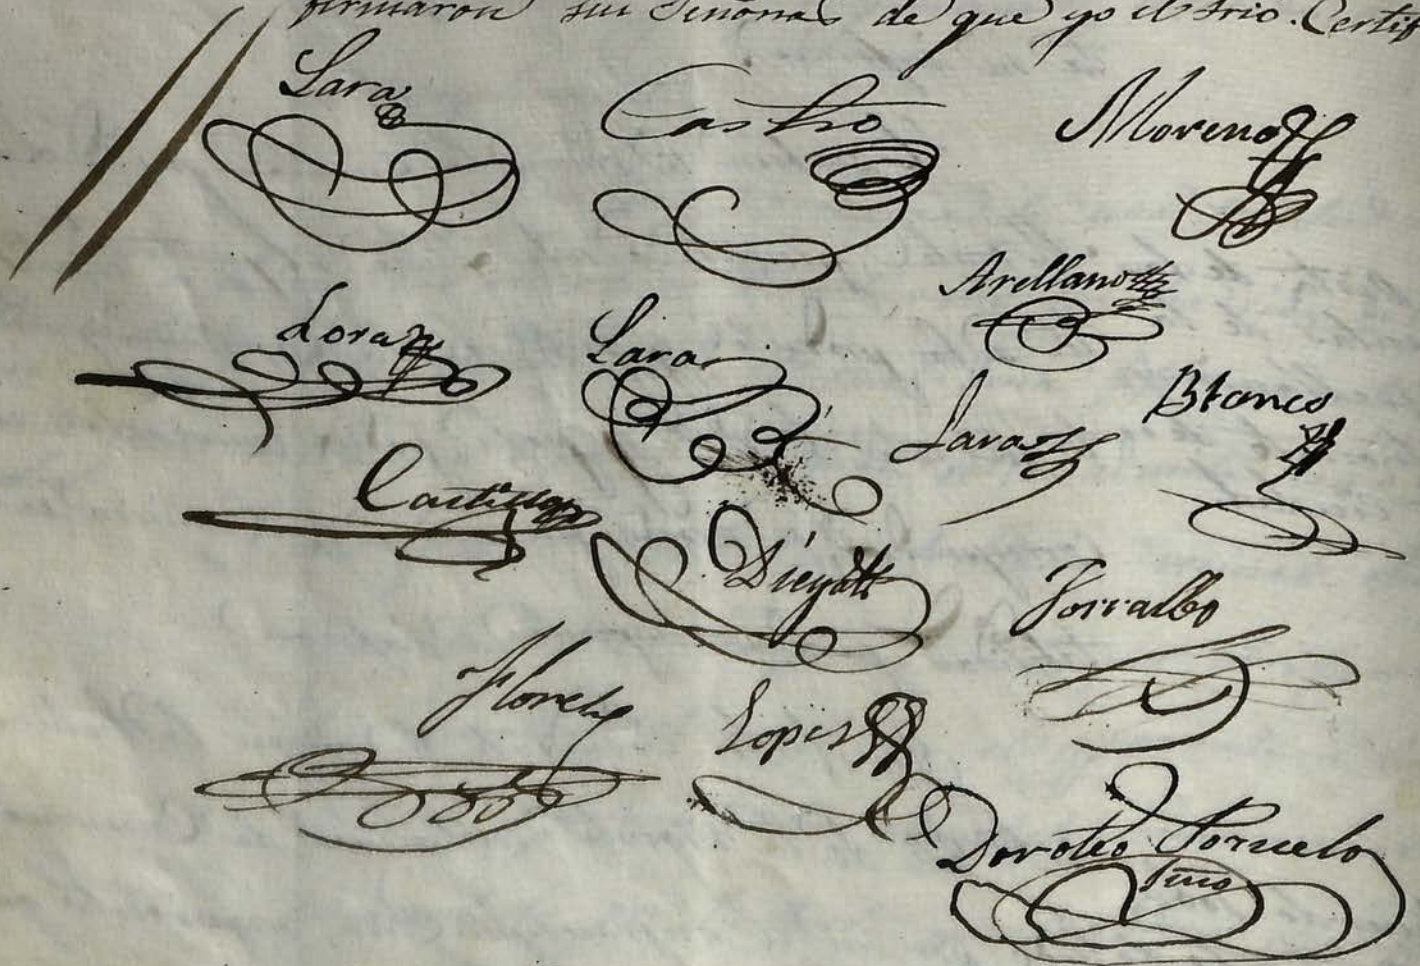 firmaron sus Señorias de que yo el Srio. Certif
Lara
Castro
Moreno
Arellano
Lora
Lara
Lara
Blanco
Castilla
Torralbo
Flores
Lopes
Doroteo
Srio